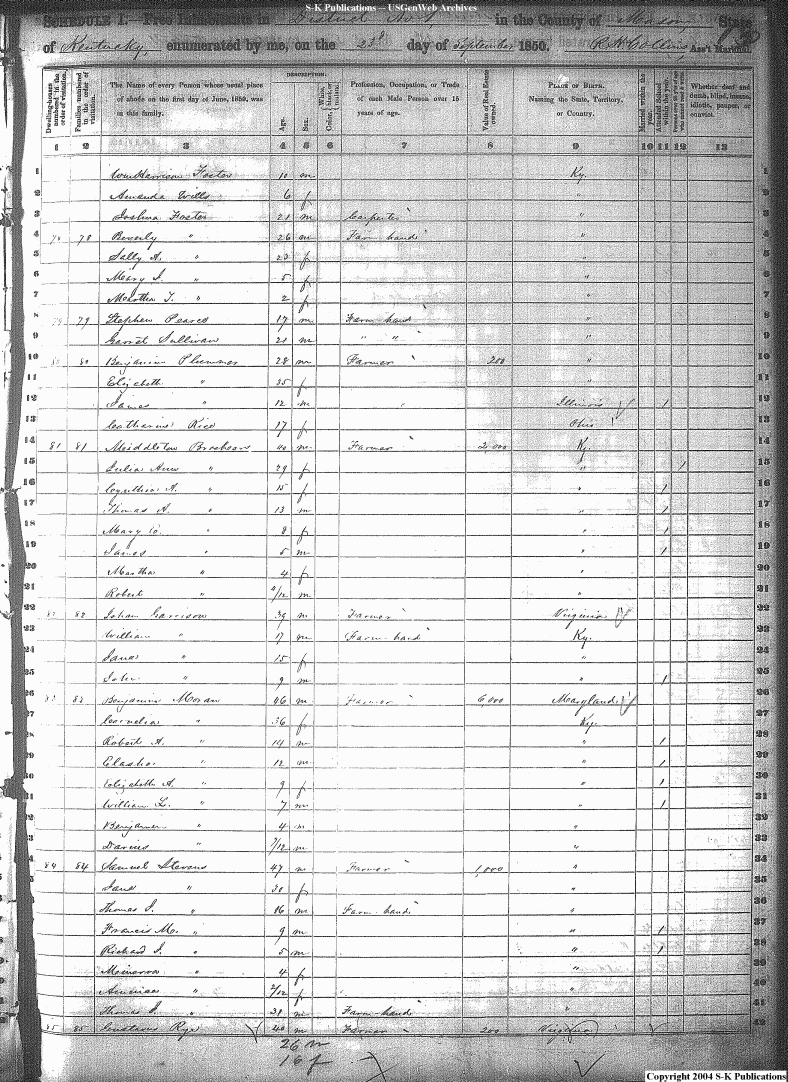 S-K Publications — USGenWeb Archives
SCHEDULE I.—Free Inhabitants in District No 1 in the County of Mason State
of Kentucky, enumerated by me, on the 25th day of September 1850. R. H. Collins Ass't Marshal.
DESCRIPTION.
Dwelling-houses numbered in the order of visitation.
Families numbered in the order of visitation.
The Name of every Person whose usual place of abode on the first day of June, 1850, was in this family.
Age.
Sex.
Color, White, black, or mulatto.
Profession, Occupation, or Trade of each Male Person over 15 years of age.
Value of Real Estate owned.
PLACE OF BIRTH. Naming the State, Territory, or Country.
Married within the year.
Attended School within the year.
Whether deaf and dumb, blind, insane, idiotic, pauper, or convict.
1 2 3 4 5 6 7 8 9 10 11 12 13
1 Wm Harrison Foster 10 m Ky. 1
2 Amanda Wills 6 f " 2
3 Joshua Foster 21 m Carpenter " 3
4 78 78 Beverly " 26 m Farm hand " 4
5 Sally A. " 23 f " 5
6 Mary J. " 5 f " 6
7 Martha T. " 2 f " 7
8 79 79 Stephen Pearce 17 m Farm hand " 8
9 Garret Sullivan 21 m " " " 9
10 80 80 Benjamin Plummer 28 m Farmer 200 " 10
11 Elizabeth " 35 f " 11
12 James " 12 m Illinois / 12
13 Catharine Rice 17 f Ohio 13
14 81 81 Middleton Brashears 40 m Farmer 2,000 Ky. 14
15 Julia Ann " 29 f " / 15
16 Cynthia A. " 15 f " / 16
17 Thomas A. " 13 m " / 17
18 Mary C. " 8 f " / 18
19 James " 5 m " / 19
20 Martha " 4 f " 20
21 Robert " /12 m " 21
22 82 82 Garrison 39 m Farmer Virginia 22
23 William " 17 m Farm hand Ky. 23
24 " 15 f " 24
25 John " 9 m " / 25
26 83 83 Benjamin Moran 46 m Farmer 6,000 Maryland 26
27 Cornelia " 36 f Ky. 27
28 Robert A. " 14 m " / 28
29 " 12 m " / 29
30 Elizabeth A. " 9 f " / 30
31 William L. " 7 m " / 31
32 Benjamin " 4 m " 32
33 " 7/12 m " 33
34 84 84 Samuel Stevens 47 m Farmer 1,000 " 34
35 " 30 f " 35
36 Thomas J. " 16 m Farm hand " 36
37 Francis M. " 9 m " / 37
38 Richard J. " 5 m " / 38
Minerva " 4 f " 39
" /12 f " 40
Thomas J. " 31 m Farm hand " 41
85 85 40 m Farmer 200 Virginia 42
26 m
16 f
Copyright 2004 S-K Publications